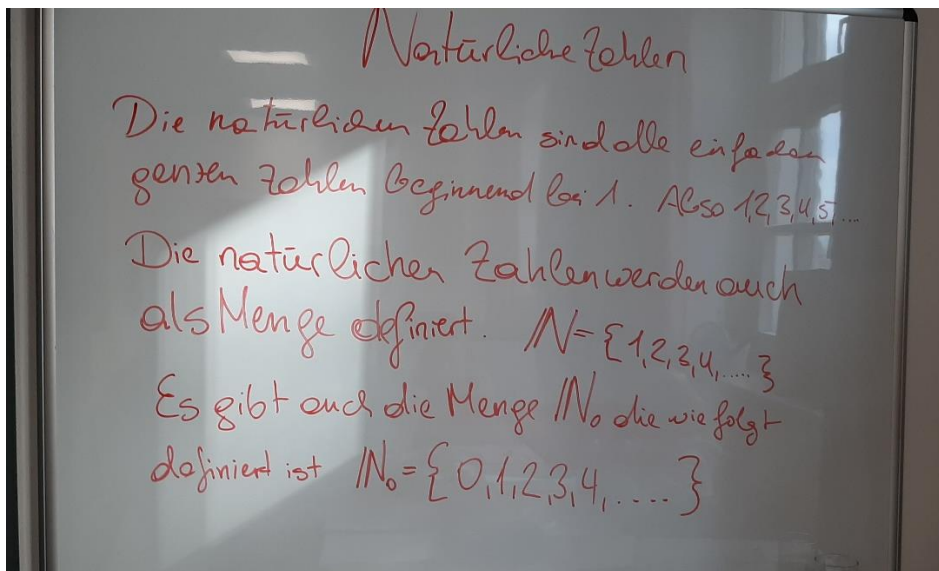 Natürliche Zahlen
Die natürlichen Zahlen sind alle einfachen
ganzen Zahlen beginnend bei 1. Also 1,2,3,4,5,...
Die natürlichen Zahlen werden auch
als Menge definiert. ℕ={1,2,3,4,.....}
Es gibt auch die Menge ℕ₀ die wie folgt
definiert ist ℕ₀={0,1,2,3,4,.....}